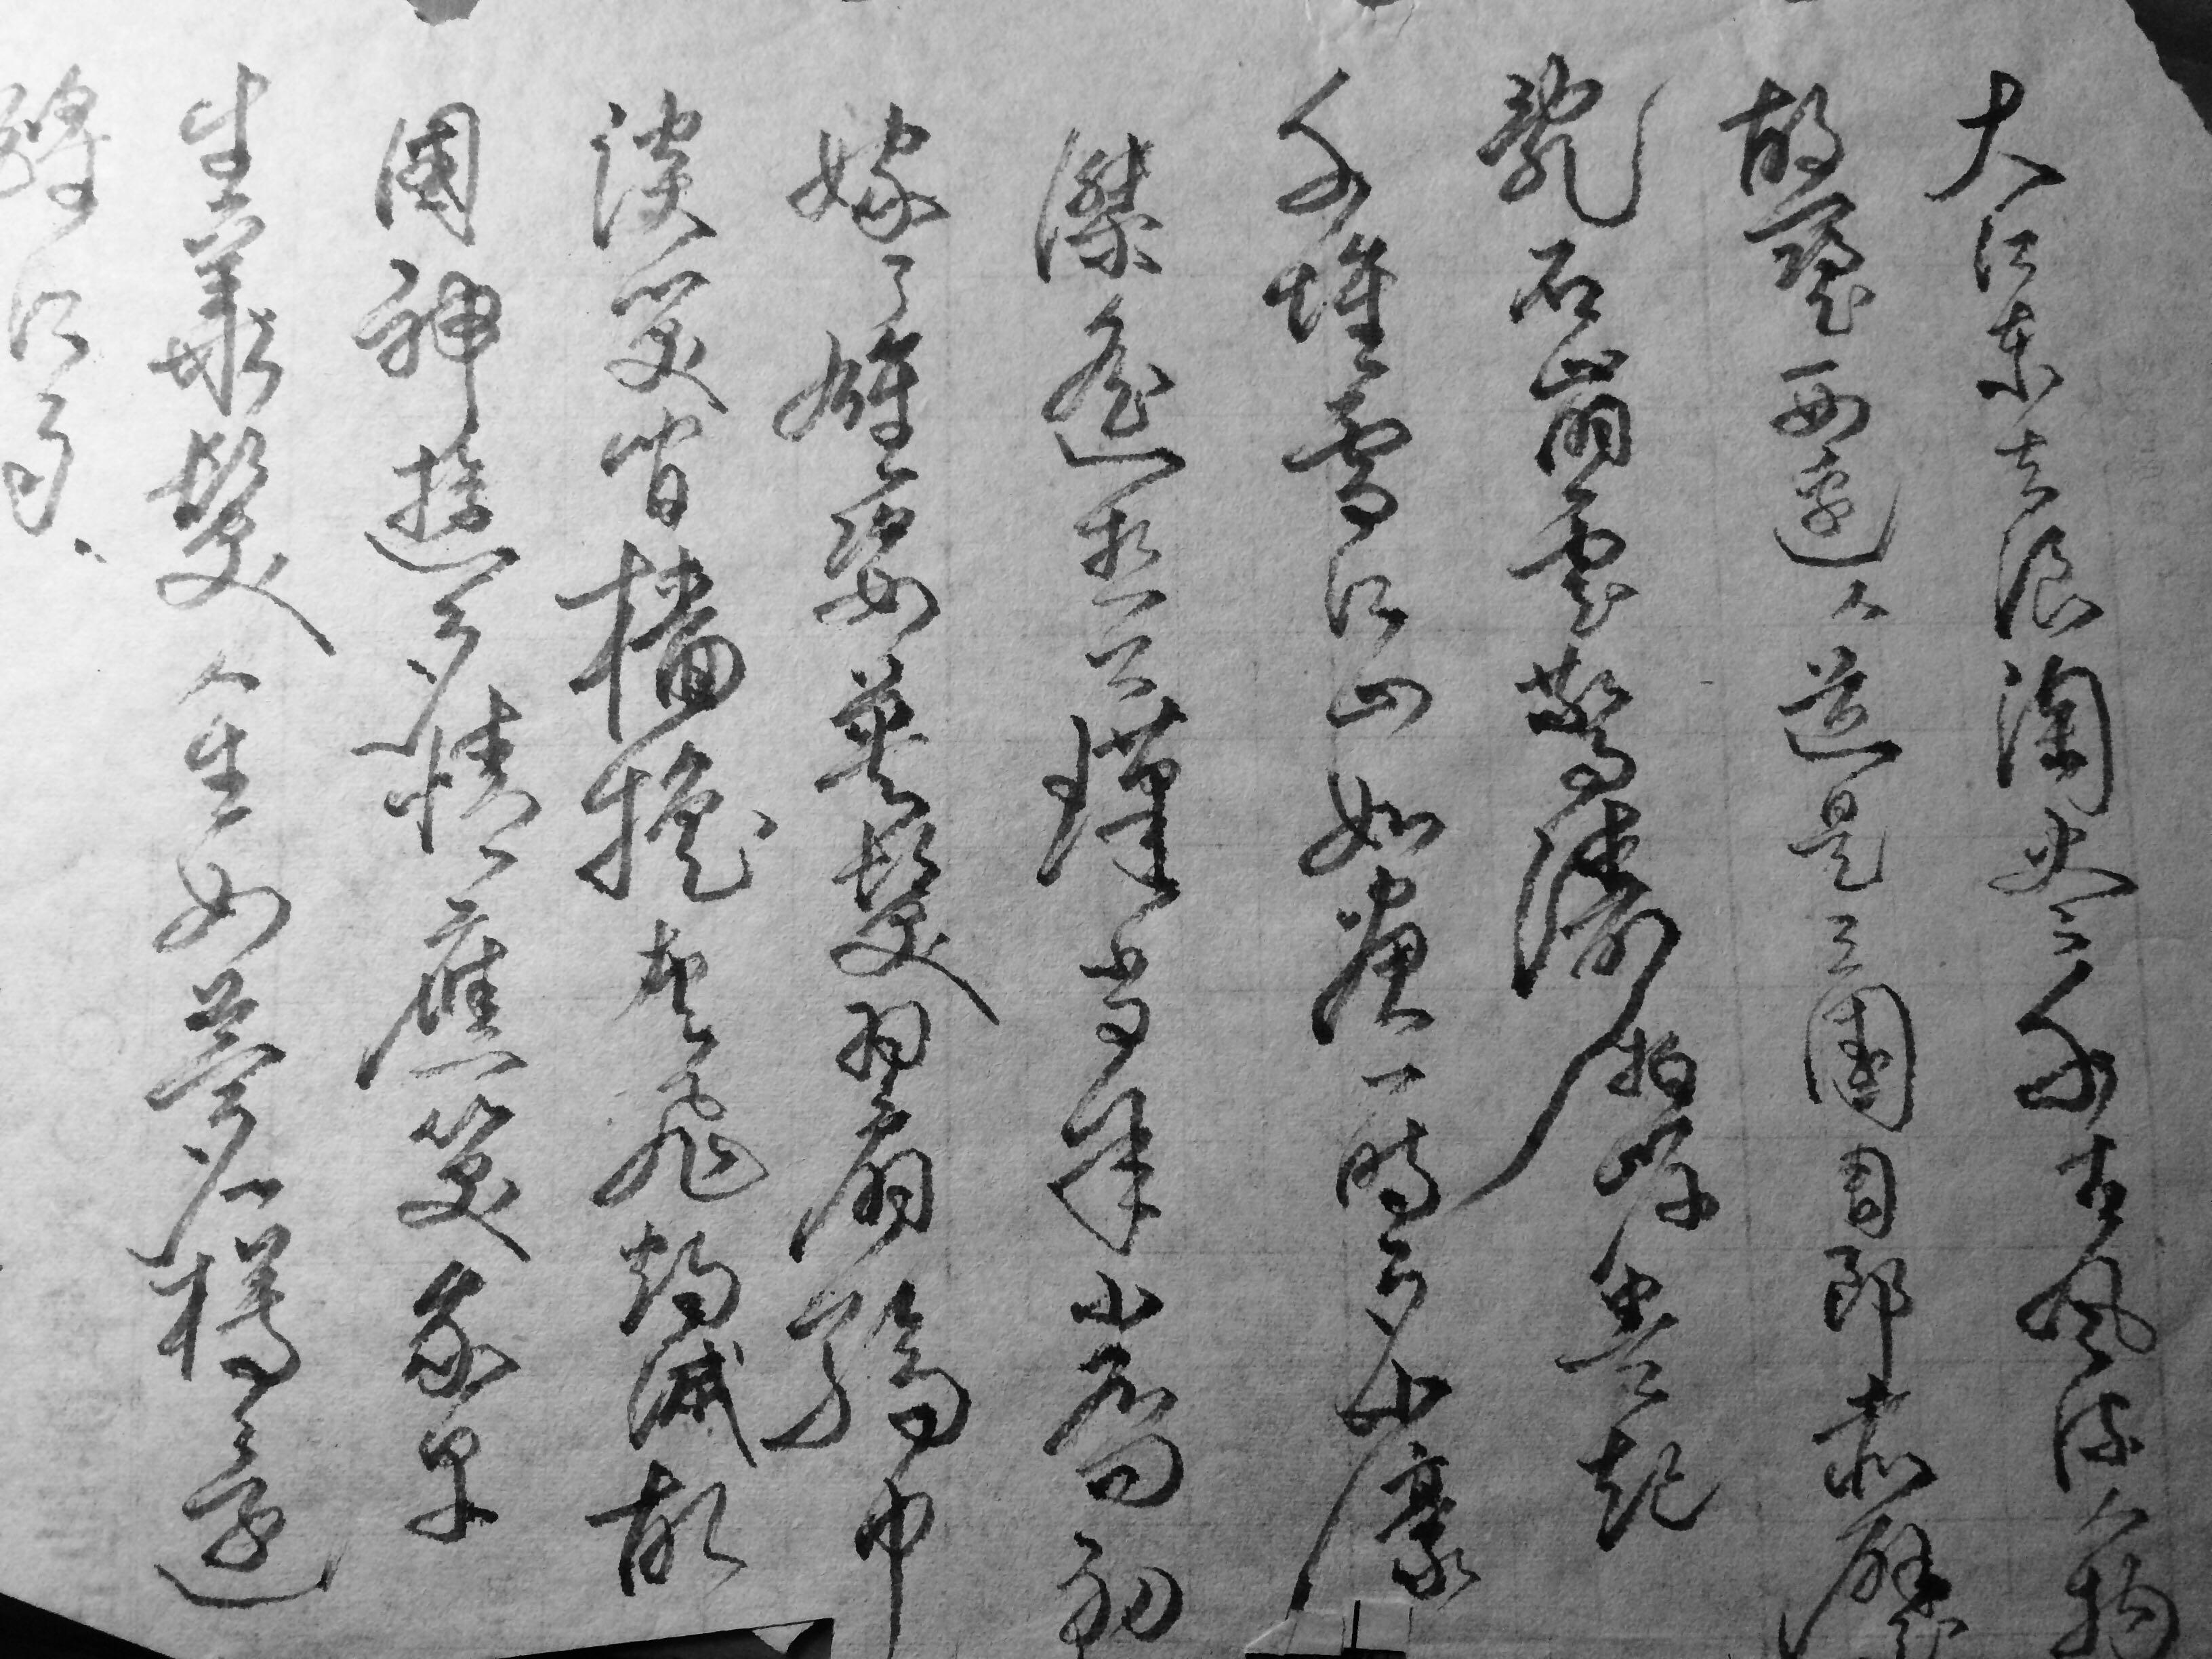 大江东去浪淘尽千古风流人物
故壘西邊人道是三國周郎赤壁
亂石崩雲驚濤拍岸卷起
千堆雪江山如畫一時多少豪
傑遙想公瑾当年小喬初
嫁了雄姿英發羽扇綸巾
談笑間檣櫓灰飛煙滅故
國神遊多情應笑我早
生華髮人生如夢一樽還
酹江月